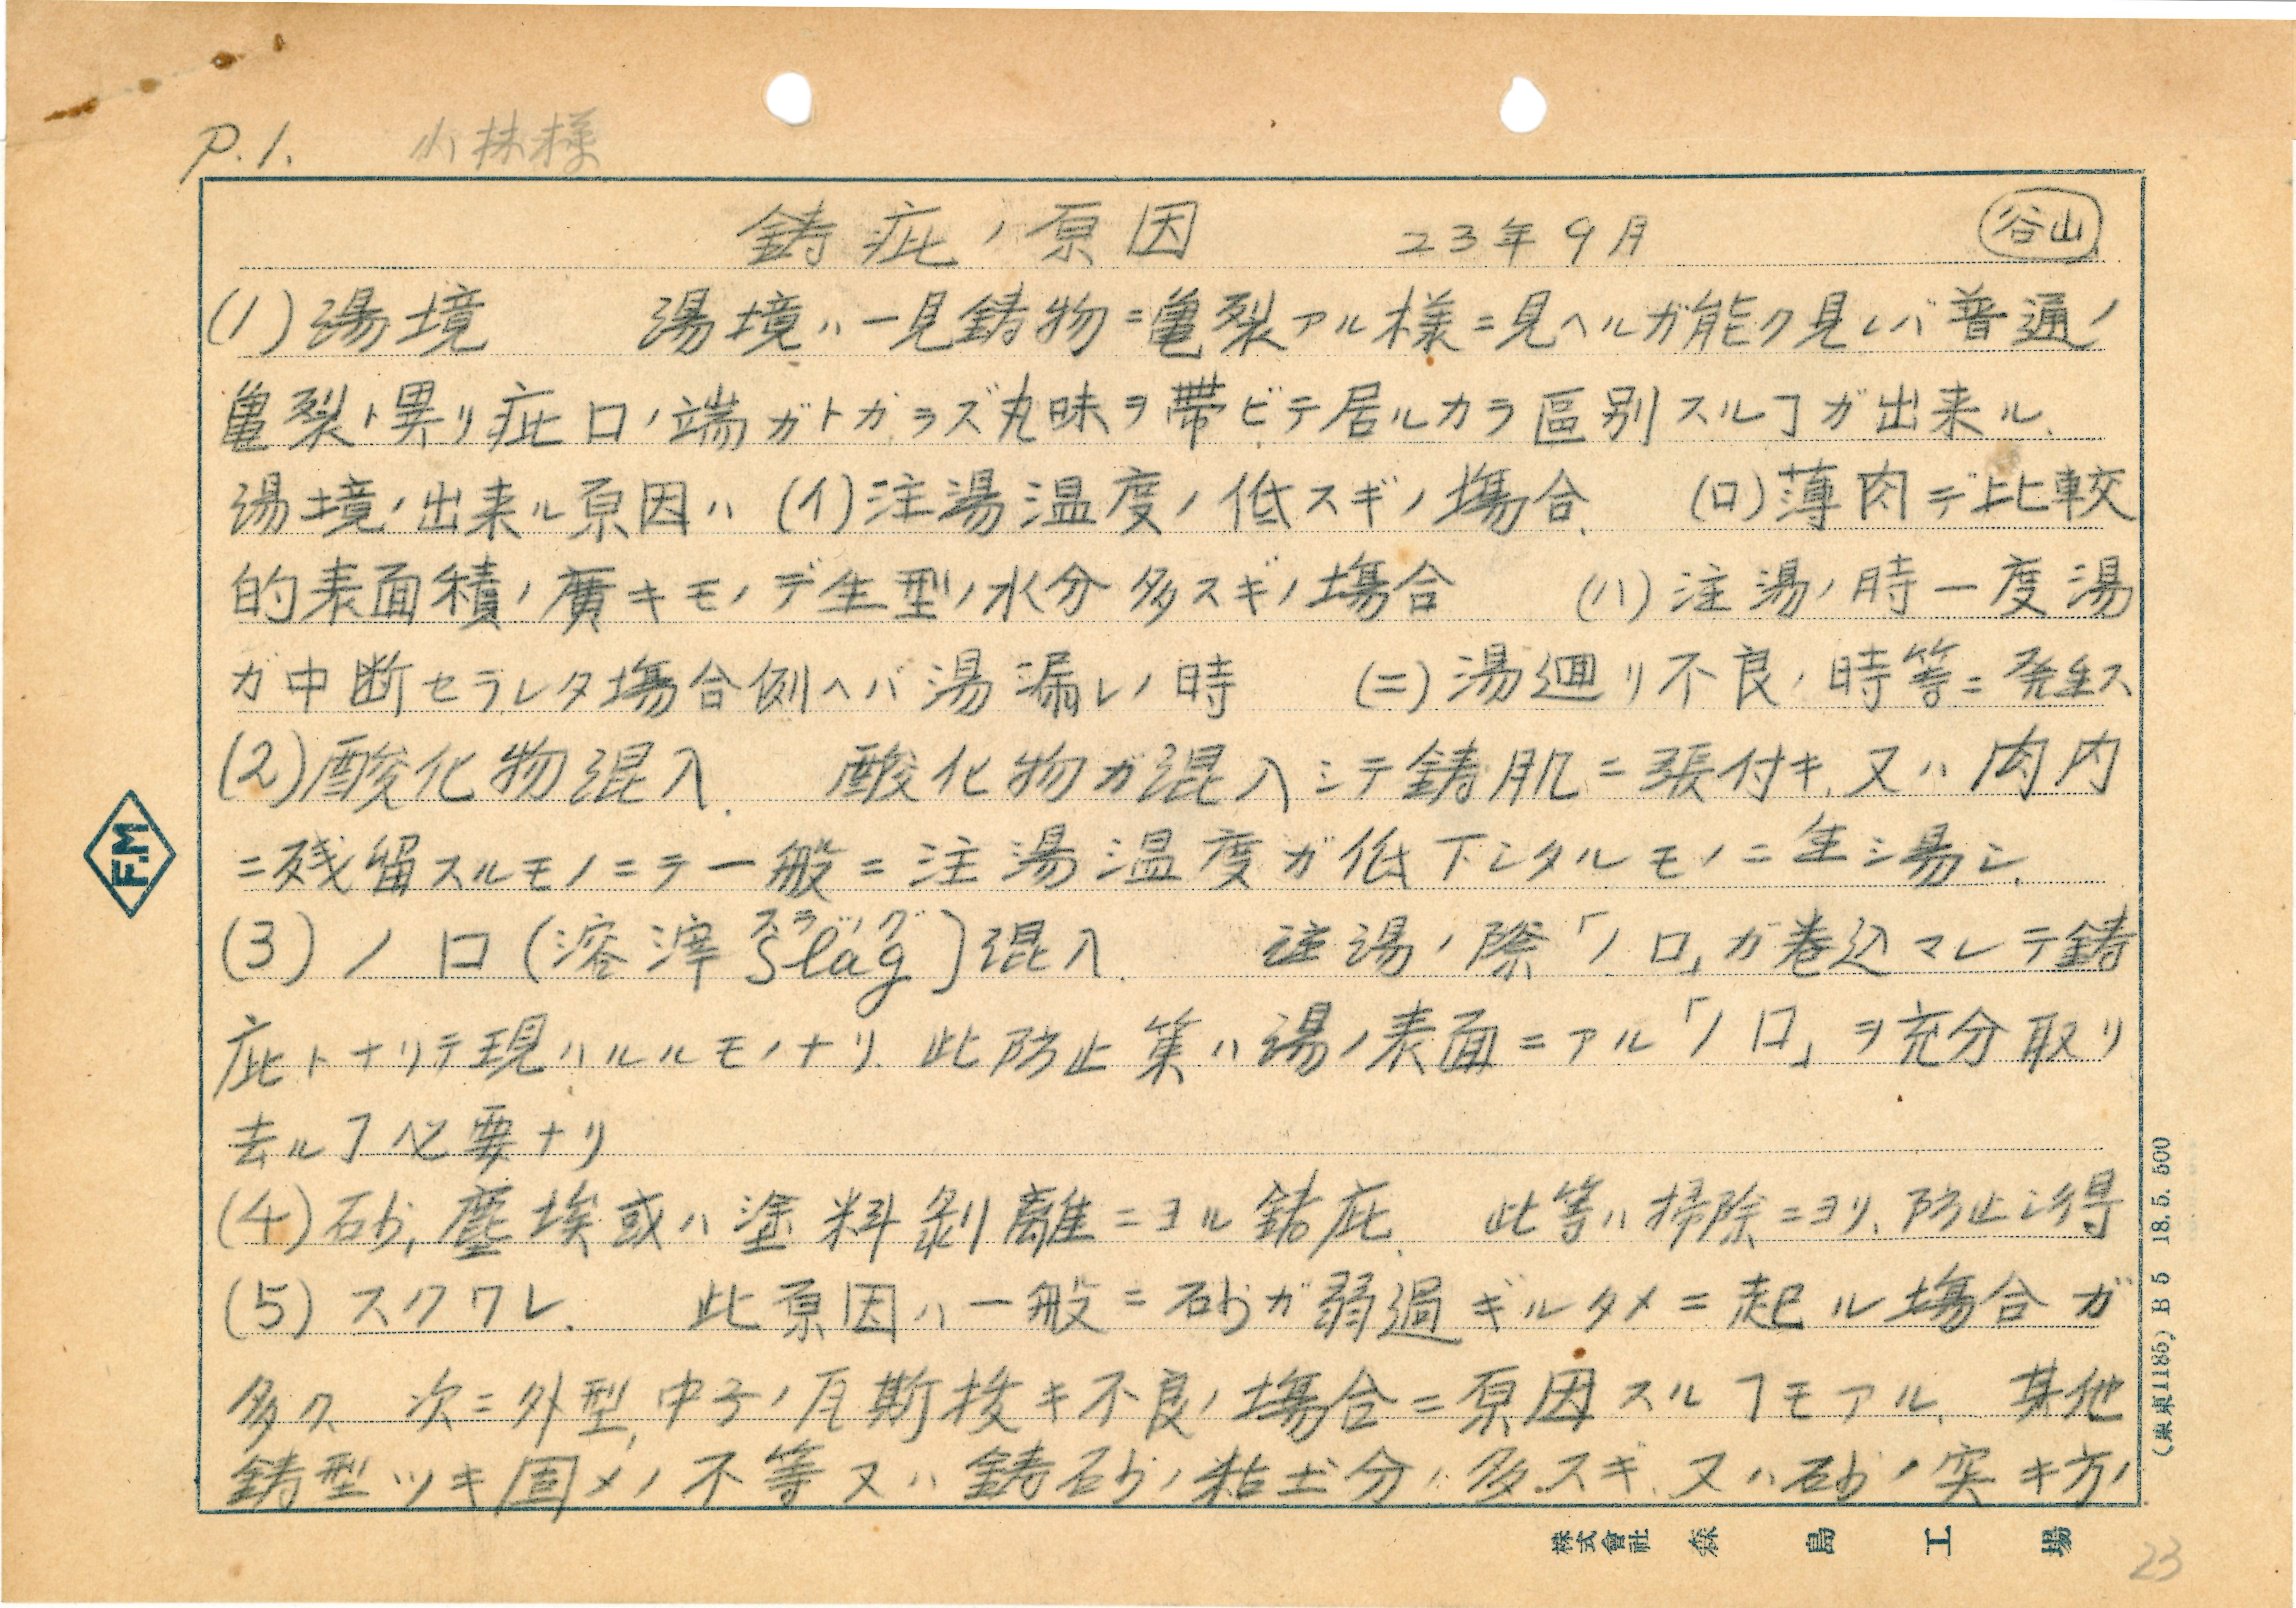 P.1. 小林様
鋳疵ノ原因 23年9月 谷山
(1)湯境 湯境ハ一見鋳物ニ亀裂アル様ニ見ヘルガ能ク見レバ普通ノ
亀裂ト異リ疵口ノ端ガトガラズ丸味ヲ帯ビテ居ルカラ區別スルヿガ出来ル、
湯境ノ出来ル原因ハ (イ)注湯温度ノ低スギノ場合、 (ロ)薄肉デ比較
的表面積ノ廣キモノデ生型ノ水分多スギノ場合 (ハ)注湯ノ時一度湯
ガ中断セラレタ場合例ヘバ湯漏レノ時 (ニ)湯廻リ不良ノ時等ニ発生ス
(2)酸化物混入、 酸化物ガ混入シテ鋳肌ニ張付キ、又ハ肉内
ニ残留スルモノニテ一般ニ注湯温度ガ低下シタルモノニ生シ易シ、
(3)ノロ(溶滓 Slag スラッグ)混入、 注湯ノ際「ノロ」ガ巻込マレテ鋳
疵トナリテ現ハルルモノナリ、此防止策ハ湯ノ表面ニアル「ノロ」ヲ充分取リ
去ルヿ必要ナリ
(4)砂、塵埃或ハ塗料剝離ニヨル鋳疵、 此等ハ掃除ニヨリ、防止シ得
(5)スクワレ、 此原因ハ一般ニ砂ガ弱過ギルタメニ起ル場合ガ
多ク 次ニ外型、中子ノ瓦斯抜キ不良ノ場合ニ原因スルヿモアル、 其他
鋳型ツキ固メノ不等又ハ鋳砂ノ粘土分ノ多スギ、又ハ砂ノ突キ方ノ
F.M
(東京1185) B5 18.5.500
株式會社 森島工場
23